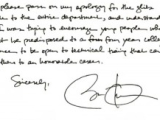 please pass on my apology for the glitz
to the entire department, and understand
I was trying to encourage young people who
not be predisposed to a four year college
to be open to technical training that can
them to an honorable career.
Sincerely,